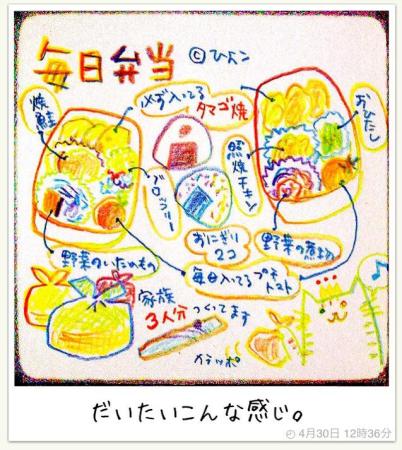 毎日弁当
©ひょん
必ず入ってる
タマゴ焼
焼鮭
おひたし
ブロッコリー
照焼チキン
おにぎり
2コ
野菜のいためもの
野菜の煮物
毎日入ってるプチ
トマト
家族
3人分つくってます
だいたいこんな感じ。
4月30日 12時36分